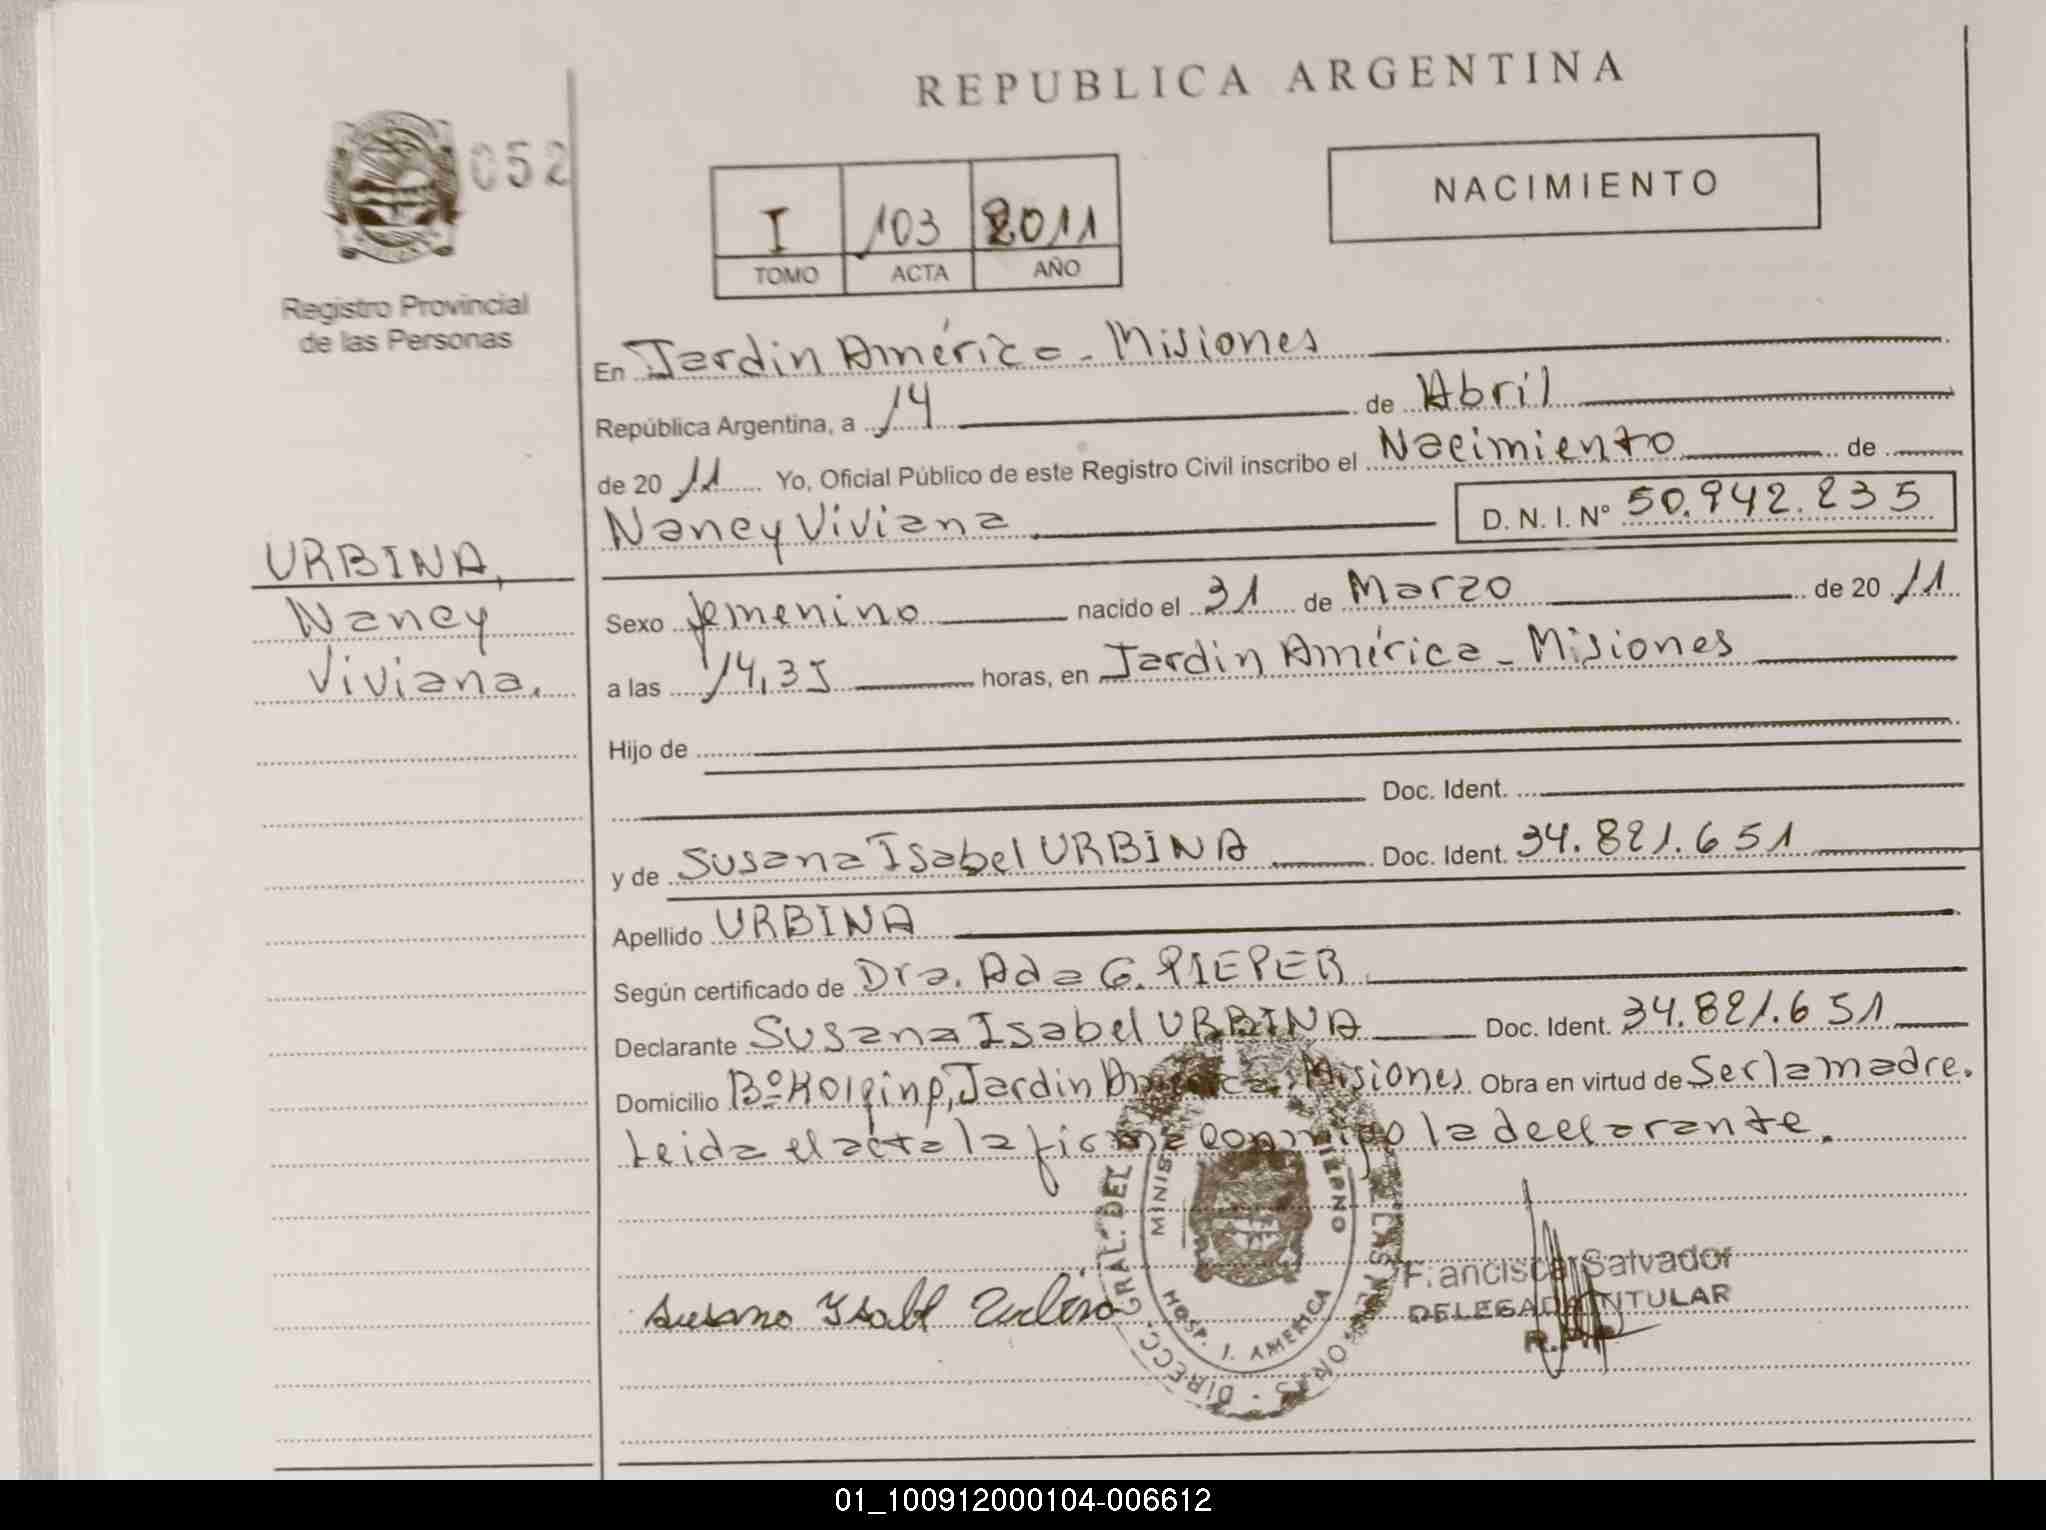 REPUBLICA ARGENTINA
052
NACIMIENTO
I 103 2011
TOMO ACTA AÑO
Registro Provincial
de las Personas
URBINA,
Nancy
Viviana.
En Jardin América - Misiones
República Argentina, a 14 de Abril
de 20 11 Yo, Oficial Público de este Registro Civil inscribo el Nacimiento de
Nancy Viviana D. N. I. Nº 50.942.235
Sexo femenino nacido el 31 de Marzo de 20 11
a las 14,35 horas, en Jardin América - Misiones
Hijo de
Doc. Ident.
y de Susana Isabel URBINA Doc. Ident. 34.821.651
Apellido URBINA
Según certificado de Dra. Ada G. PIEPER
Declarante Susana Isabel URBINA Doc. Ident. 34.821.651
Domicilio Bº Kolping, Jardin América, Misiones Obra en virtud de Ser la madre.
Leida el acta la firma conmigo la declarante.
Susana Isabel Urbina
Francisca Salvador
DELEGADA TITULAR
R.P.P
DIRECC. GRAL. DEL
HOSP. J. AMERICA
01_100912000104-006612